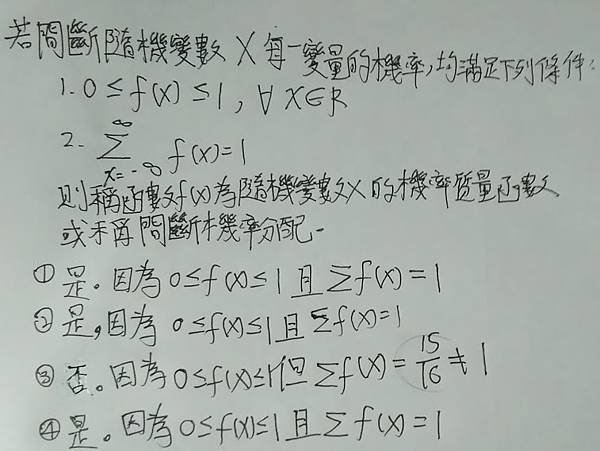 若間斷隨機變數 X 每一變量的機率,均滿足下列條件:
1. 0 ≤ f(x) ≤ 1, ∀ x∈R
2. ∞∑x=-∞ f(x)=1
則稱函數f(x)為隨機變數X的機率質量函數
或稱間斷機率分配。
① 是。因為 0≤f(x)≤1 且 Σf(x)=1
② 是,因為 0≤f(x)≤1 且 Σf(x)=1
③ 否。因為 0≤f(x)≤1 但 Σf(x)= 15/16 ≠ 1
④ 是。因為 0≤f(x)≤1 且 Σf(x)=1